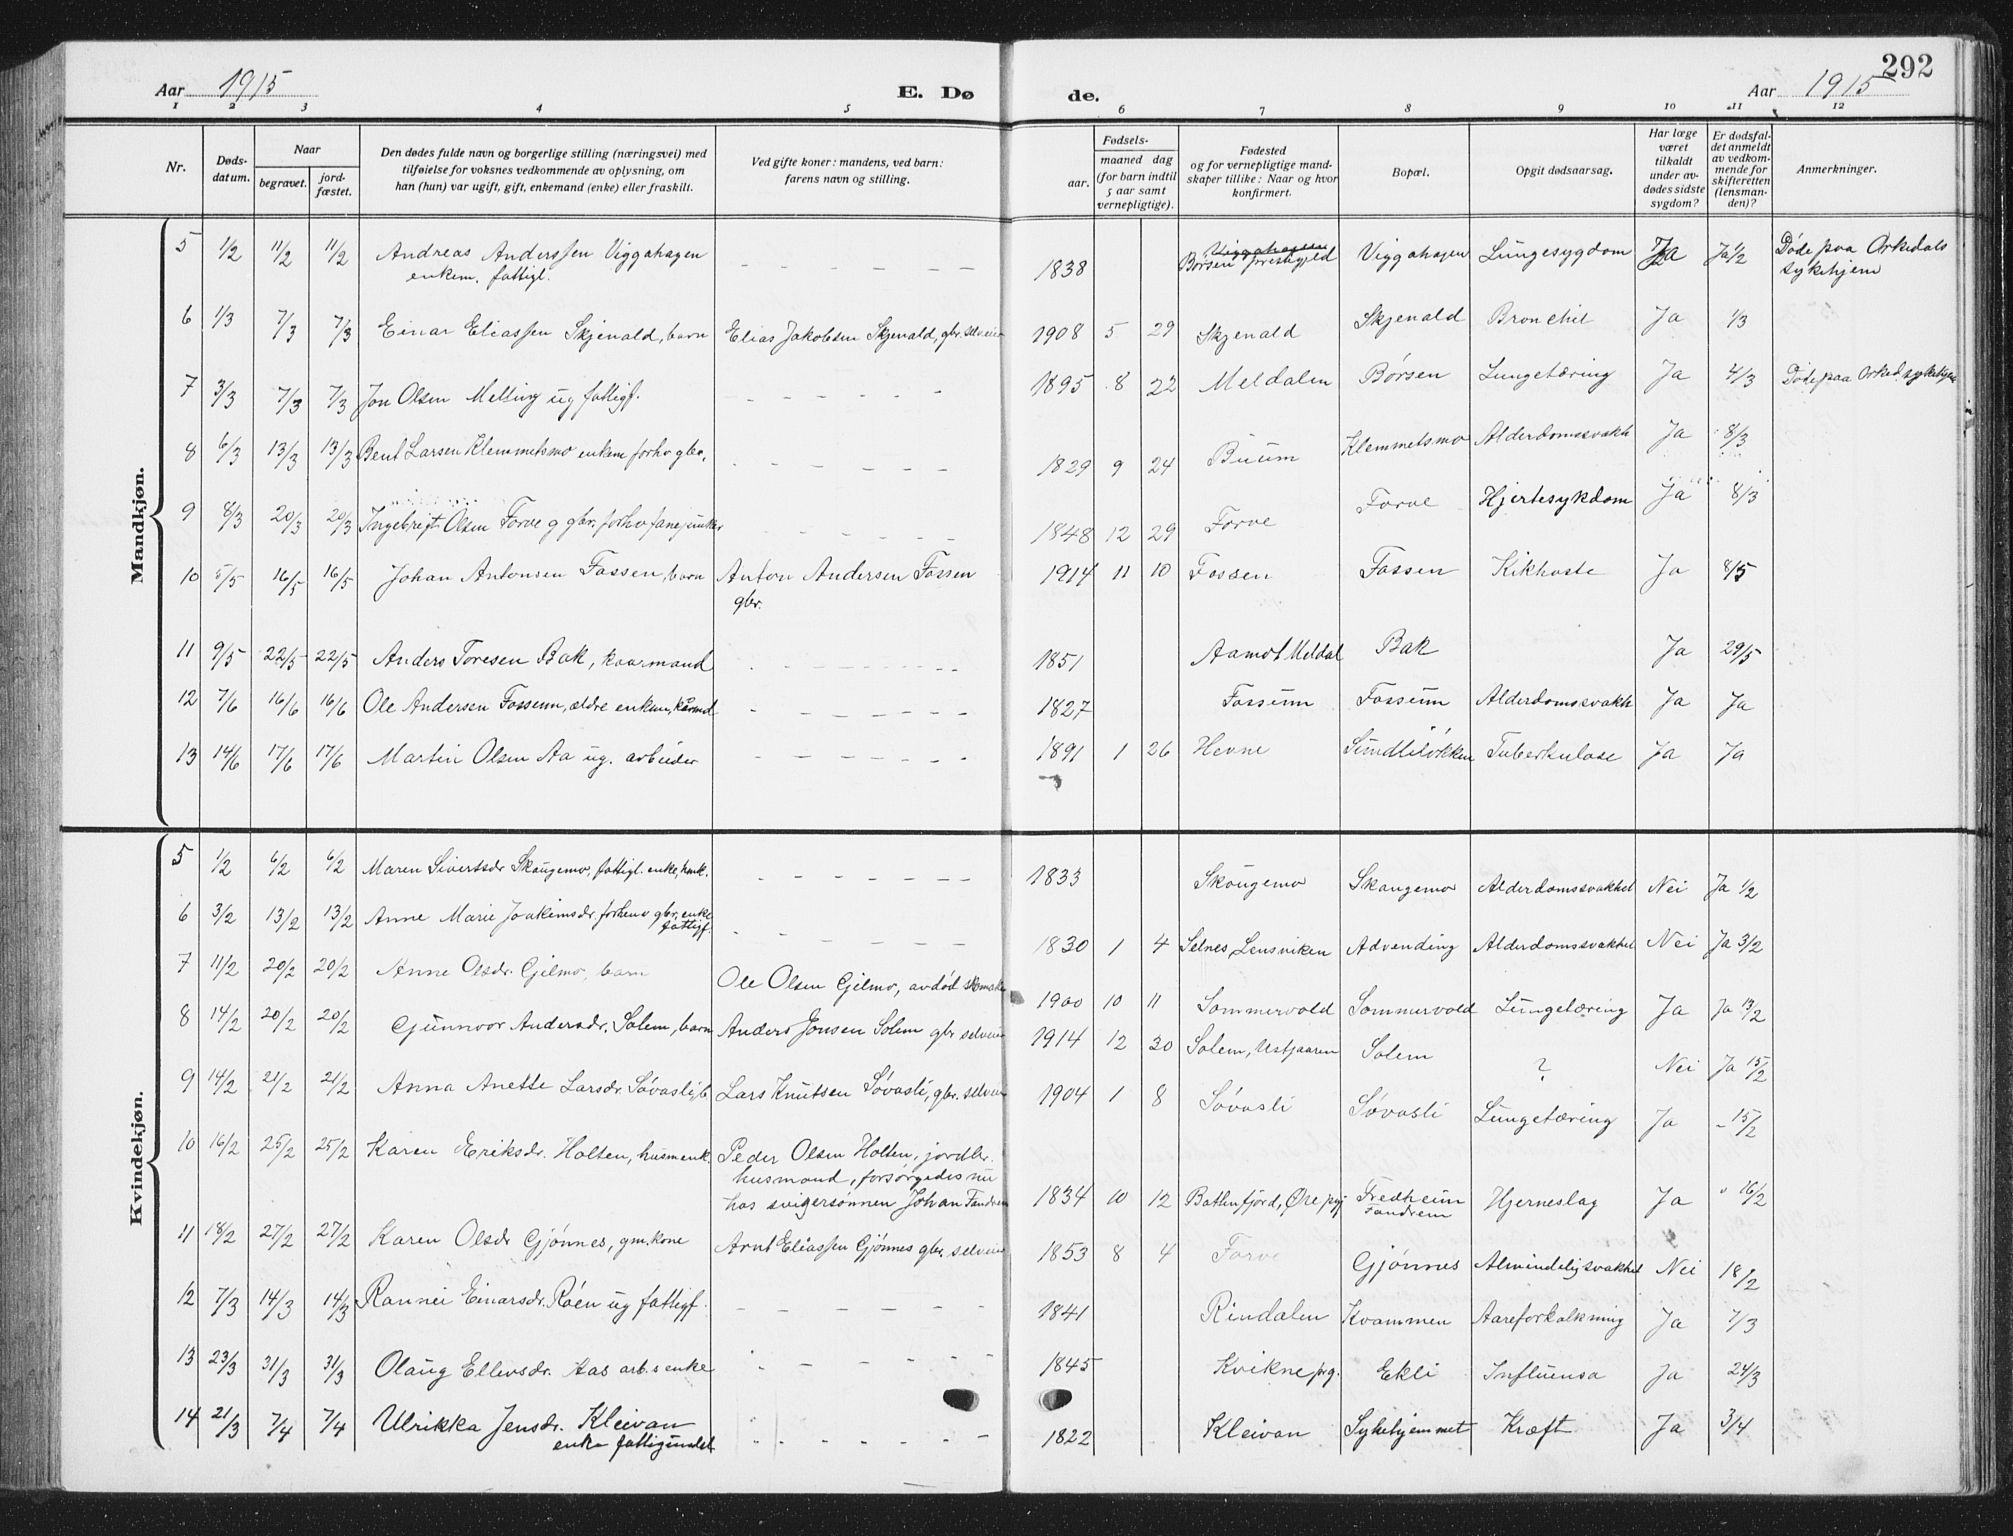 292
Aar 1915 E. Døde. Aar 1915
1 2 3 4 5 6 7 8 9 10 11 12
Nr. | Døds-datum. | Naar begravet. | Naar jord-fæstet. | Den dødes fulde navn og borgerlige stilling (næringsvei) med tilføielse for voksnes vedkommende av oplysning, om han (hun) var ugift, gift, enkemand (enke) eller fraskilt. | Ved gifte koner: mandens, ved barn: farens navn og stilling. | Fødsels- aar. | maaned dag (for barn indtil 5 aar samt vernepligtige). | Fødested og for vernepligtige mandskaper tillike: Naar og hvor konfirmert. | Bopæl. | Opgit dødsaarsag. | Har læge været tilkaldt under avdødes sidste sygdom? | Er dødsfaldet anmeldt av vedkommende for skifteretten (lensmanden)? | Anmerkninger.
Mandkjøn.
5 1/2 11/2 11/2 Andreas Anderssen Viggahagen enkem. fattigl. 1838 Viggahagen Børsen prestegjeld Viggahagen Lungesygdom Ja Ja 1/2 Døde paa Orkedals sykehjem
6 1/3 7/3 7/3 Einar Eliassen Skjenald, barn Elias Jakobsen Skjenald, gbr. selveier 1908 5 29 Skjenald Skjenald Bronchit Ja 1/3
7 3/3 7/3 7/3 Jon Olsen Melting ug fattigf. 1895 8 22 Meldalen Børsen Lungetæring Ja 4/3 Døde paa Orked. sykehjem
8 6/3 13/3 13/3 Bent Larsen Klemmetsmo enkem forhv gbr. 1829 9 24 Buum Klemmetsmo Alderdomssvakh Ja 8/3
9 8/3 20/3 20/3 Ingebrigt Olsen Forve g gbr. forhv fanejunker 1848 12 29 Forve Forve Hjertesykdom Ja 8/3
10 5/5 16/5 16/5 Johan Antonsen Fossen, barn Anton Andersen Fossen gbr. 1914 11 10 Fossen Fossen Kikhoste Ja 8/5
11 9/5 22/5 22/5 Anders Toresen Bak, kaarmand 1851 Aamot Meldal Bak Ja 29/5
12 7/6 16/6 16/6 Ole Andersen Fosseum, ældre enkem, kårmd 1827 Fosseum Fosseum Alderdomssvakh Ja Ja
13 14/6 17/6 17/6 Martin Olsen Aa ug. arbeider 1891 1 26 Hevne Sundliløkken Tuberkulose Ja Ja
Kvindekjøn.
5 1/2 6/2 6/2 Maren Sivertsdr Skaugemo, fattigl. enke, husk. 1833 Skaugemo Skaugemo Alderdomssvakhet Nei Ja 1/2
6 3/2 13/2 13/2 Anne Marie Joakimsdr. forhenv gbr. enke fattigf. 1830 1 4 Selnes, Lensviken Advending Alderdomssvakhet Nei Ja 3/2
7 11/2 20/2 20/2 Anne Olsdr. Gjelmo, barn Ole Olsen Gjelmo, avdød skomaker 1900 10 11 Sommervold Sommervold Lungetæring Ja Ja 13/2
8 14/2 20/2 20/2 Gunnvor Andersdr. Solem, barn Anders Jonsen Solem gbr selveier 1914 12 30 Solem, Ustjaaren Solem ? Nei Ja 15/2
9 14/2 21/2 21/2 Anna Anette Larsdr. Søvasli, b. Lars Knutsen Søvasli, gbr. selveier 1904 1 8 Søvasli Søvasli Lungetæring Ja - 15/2
10 16/2 25/2 25/2 Karen Eriksdr. Holten, husmenk. Peder Olsen Holten, jordbr. husmand, forsørgedes nu hos svigersønnen Johan Fandrem 1834 10 12 Batlenfjord, Øre pgj Fredheim Fandrem Hjerneslag Ja " 16/2
11 18/2 27/2 27/2 Karen Olsdr Gjønnes, gm. kone Arnt Eliassen Gjønnes gbr. selveier 1853 8 4 Forve Gjønnes Almindelig svakhet Nei 18/2
12 7/3 14/3 14/3 Rannei Einarsdr. Røen ug fattigf. 1841 Rindalen Kvammen Aareforkalkning Ja 7/3
13 23/3 31/3 31/3 Olaug Ellevsdr. Aas arb.s enke 1845 Kvikne prg. Ekli Influensa Ja 24/3
14 21/3 7/4 7/4 Ulrikka Jensdr. Kleivan enke fattigundst. 1822 Kleivan Sykehjemmet Kræft Ja 3/4